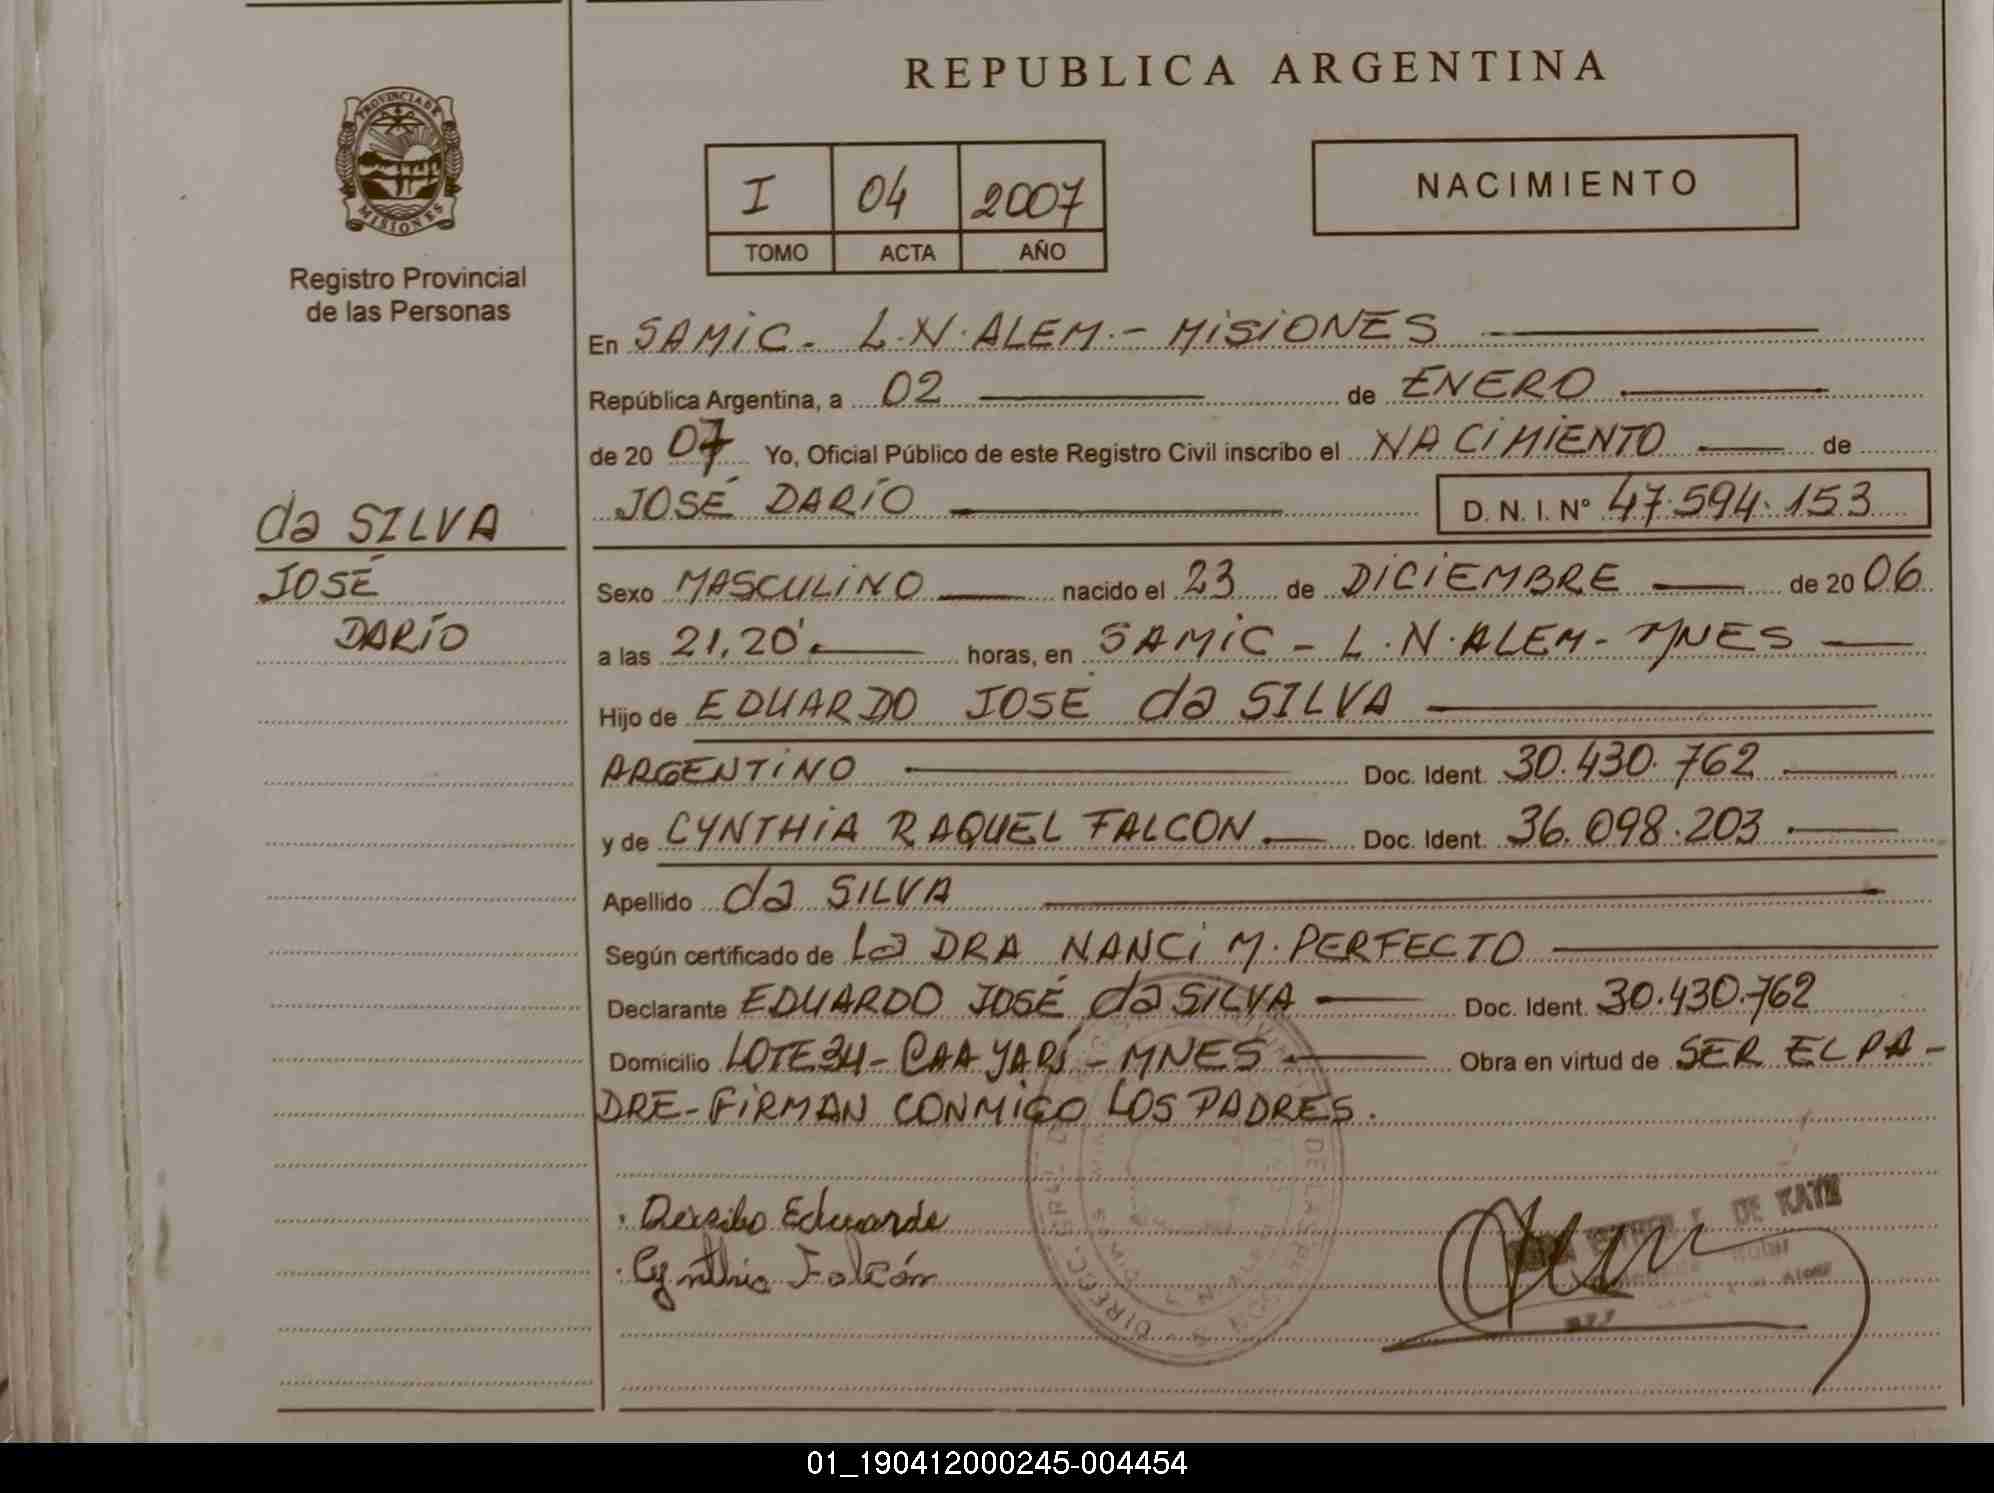 REPUBLICA ARGENTINA
PROVINCIA DE
MISIONES
Registro Provincial
de las Personas
I 04 2007
TOMO ACTA AÑO
NACIMIENTO
En SAMIC - L.N. ALEM. - MISIONES
República Argentina, a 02 de ENERO
de 20 07 Yo, Oficial Público de este Registro Civil inscribo el NACIMIENTO de
JOSÉ DARÍO D. N. I. Nº 47.594.153
da SILVA
JOSÉ
DARÍO
Sexo MASCULINO nacido el 23 de DICIEMBRE de 20 06
a las 21,20' horas, en SAMIC - L.N. ALEM - MNES
Hijo de EDUARDO JOSÉ da SILVA
ARGENTINO Doc. Ident. 30.430.762
y de CYNTHIA RAQUEL FALCON Doc. Ident. 36.098.203
Apellido da SILVA
Según certificado de La DRA NANCI M. PERFECTO
Declarante EDUARDO JOSÉ da SILVA Doc. Ident. 30.430.762
Domicilio LOTE 34 - CAA YARÍ - MNES Obra en virtud de SER EL PA-
DRE - FIRMAN CONMIGO LOS PADRES.
Eduardo
Cynthia Falcón
DE KATZ
01_190412000245-004454